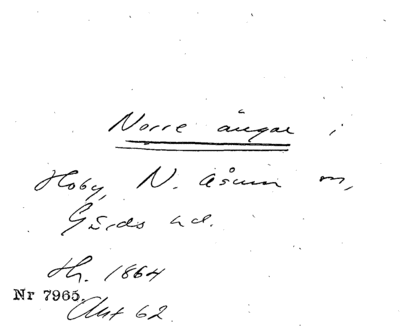 Norre ängar i
Hoby, N. Åsum sn,
Gärds hd.
Hr. 1864
Nr 7965.
Akt 62